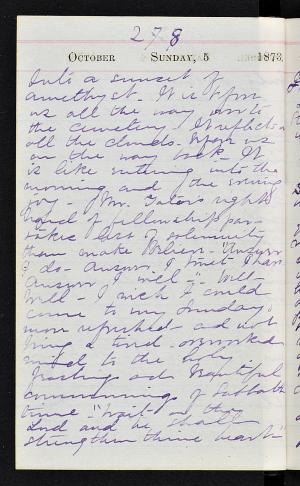 278
October Sunday, 5 1873
Into a sunset of
amethyst. It is upon
us all the way into
the Cemetery. It reflects on
all the clouds. Upon us
on the way back. It
is like nothing
morning and the
joy - Mr. right
hand of fellowship
less of solemnity
than make believe. "Answer
I do - Answer. I
Answer I will". Well.
Well - I wish I could
come to my Sunday
more refreshed - and not
bring a tired - overworked
mind to the holy
and beautiful
communings of Sabbath
time "Wait on the
Lord and he shall
strengthen thine heart"